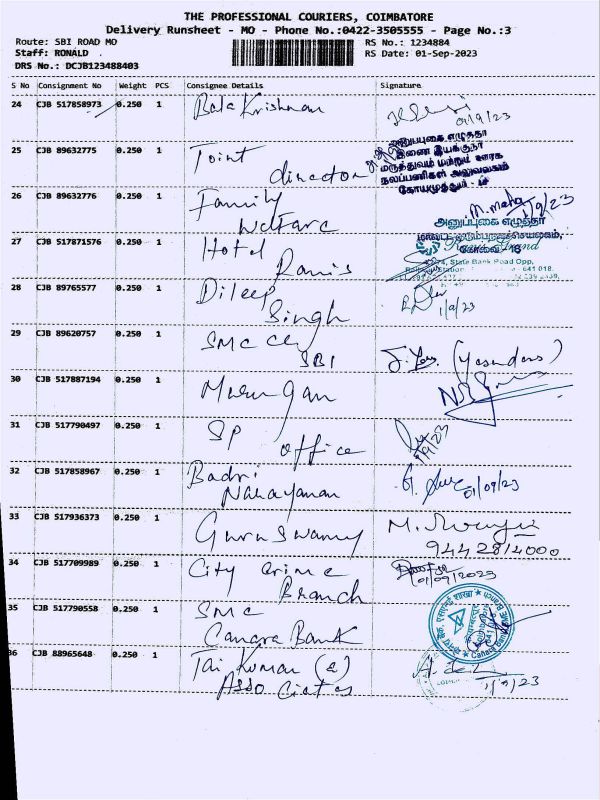 THE PROFESSIONAL COURIERS, COIMBATORE
Delivery Runsheet - MO - Phone No.:0422-3505555 - Page No.:3
Route: SBI ROAD MO RS No.: 1234884
Staff: RONALD . RS Date: 01-Sep-2023
DRS No.: DCJB123488403
S No Consignment No Weight PCS Consignee Details Signature
24 CJB 517858973 0.250 1 Bala Krishnan
01/9/23
25 CJB 89632775 0.250 1 Joint
director
அனுப்புகை எழுத்தர்
இணை இயக்குநர்
மருத்துவம் மற்றும் ஊரக
நலப்பணிகள் அலுவலகம்
கோயமுத்தூர் - 18
26 CJB 89632776 0.250 1 Family
Welfare
M. Maha 1/9/23
அனுப்புகை எழுத்தர்
27 CJB 517871576 0.250 1 Hotel
Ramis
State Bank Road Opp,
641 018.
28 CJB 89765577 0.250 1 Dileep
Singh
1/9/23
29 CJB 89620757 0.250 1 SMC
SBI
30 CJB 517887194 0.250 1 Murugan
31 CJB 517790497 0.250 1 SP
office
1/9/23
32 CJB 517858967 0.250 1 Badri
Narayanan
01/09/23
33 CJB 517936373 0.250 1 Guruswamy
9442814000
34 CJB 517709989 0.250 1 City Crime
Branch
01/09/2023
35 CJB 517790558 0.250 1 SMC
Canara Bank
36 CJB 88965648 0.250 1 Jai Kumar (&)
Associates
1/9/23